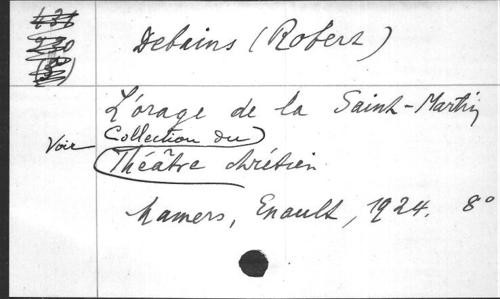 Debains (Robert)
L'orage de la Saint-Martin
Voir Collection du
Théâtre chrétien
Mamers, Enault, 1924. 8°